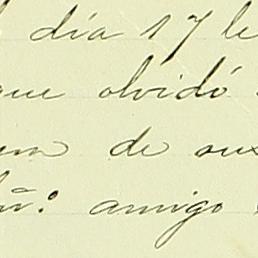 día 17 le
que olvidó
de sus
amigo